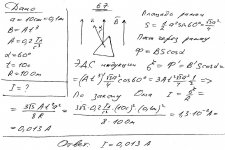 Дано
a = 10см = 0,1м
B = At³
A = 0,2 Тл/с³
α = 60°
t = 10с
R = 10 Ом
I = ?
67
Площадь рамки
S = 1/2 a² sin60° = √3a²/4
Поток через рамку
Φ = BS cosα
ЭДС индукции ℰ = Φ' = B'S cosα =
= (At³)' √3a²/4 cos60° = 3At² √3a²/4 · 1/2
По закону Ома I = ℰ/R =
= 3√3At²a²/8R = 3√3·0,2 Тл/с³·(10с)²·(0,1м)²/8·10 Ом = 1,3·10⁻²A =
= 0,013 A
Ответ: I = 0,013 A